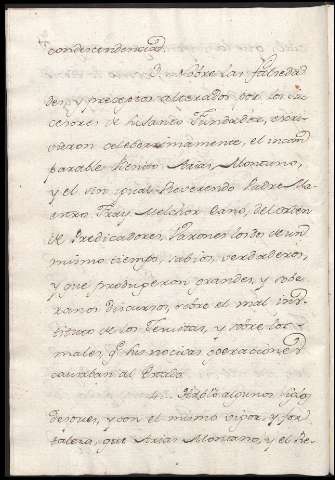 condescendencias.
3. Sobre las falseda
des, y preceptos alterados por los su
cesores de su Santo Fundador, escri
vieron celebremente, el incom
parable Benito Arias Montano,
y el sin igual Reverendo Padre Ma
estro Fray Melchor Cano, del orden
de Predicadores, Varones los dos de un
mismo tiempo, sabios, verdaderos,
y que produgeron grandes, y sobe
ranos discursos, sobre el mal ins
tituto de los Jesuitas, y sobre los
males, q.e sus nocivas operaciones
causaban al Estado.
4. algunos siglos
despues, y con el mismo vigor, y for
taleza, que Arias Montano, y el Re